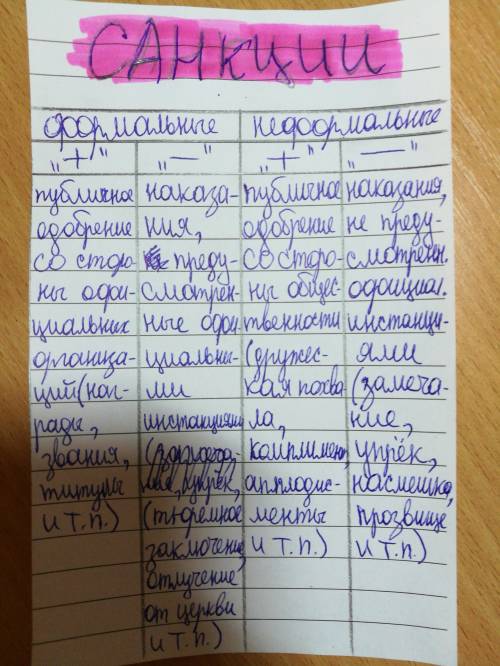 САНКЦИИ
формальные
неформальные
„+“
„—“
„+“
„—“
публичное
одобрение
со сторо-
ны офи-
циальных
организа-
ций (наг-
рады,
звания,
титулы
и т.п.)
наказа-
ния,
преду-
смотрен-
ные офи-
циальны-
ми
инстанциями
(замеча-
ние, упрёк,
(тюремное
заключение,
отлучение
от церкви
и т.п.)
публичное
одобрение
со сторо-
ны общес-
твенности
(дружес-
кая похва-
ла,
комплимент,
апплодис-
менты
и т.п.)
наказания,
не преду-
смотрен.
официал.
инстанци-
ями
(замеча-
ние,
упрёк,
насмешка,
прозвище
и т.п.)